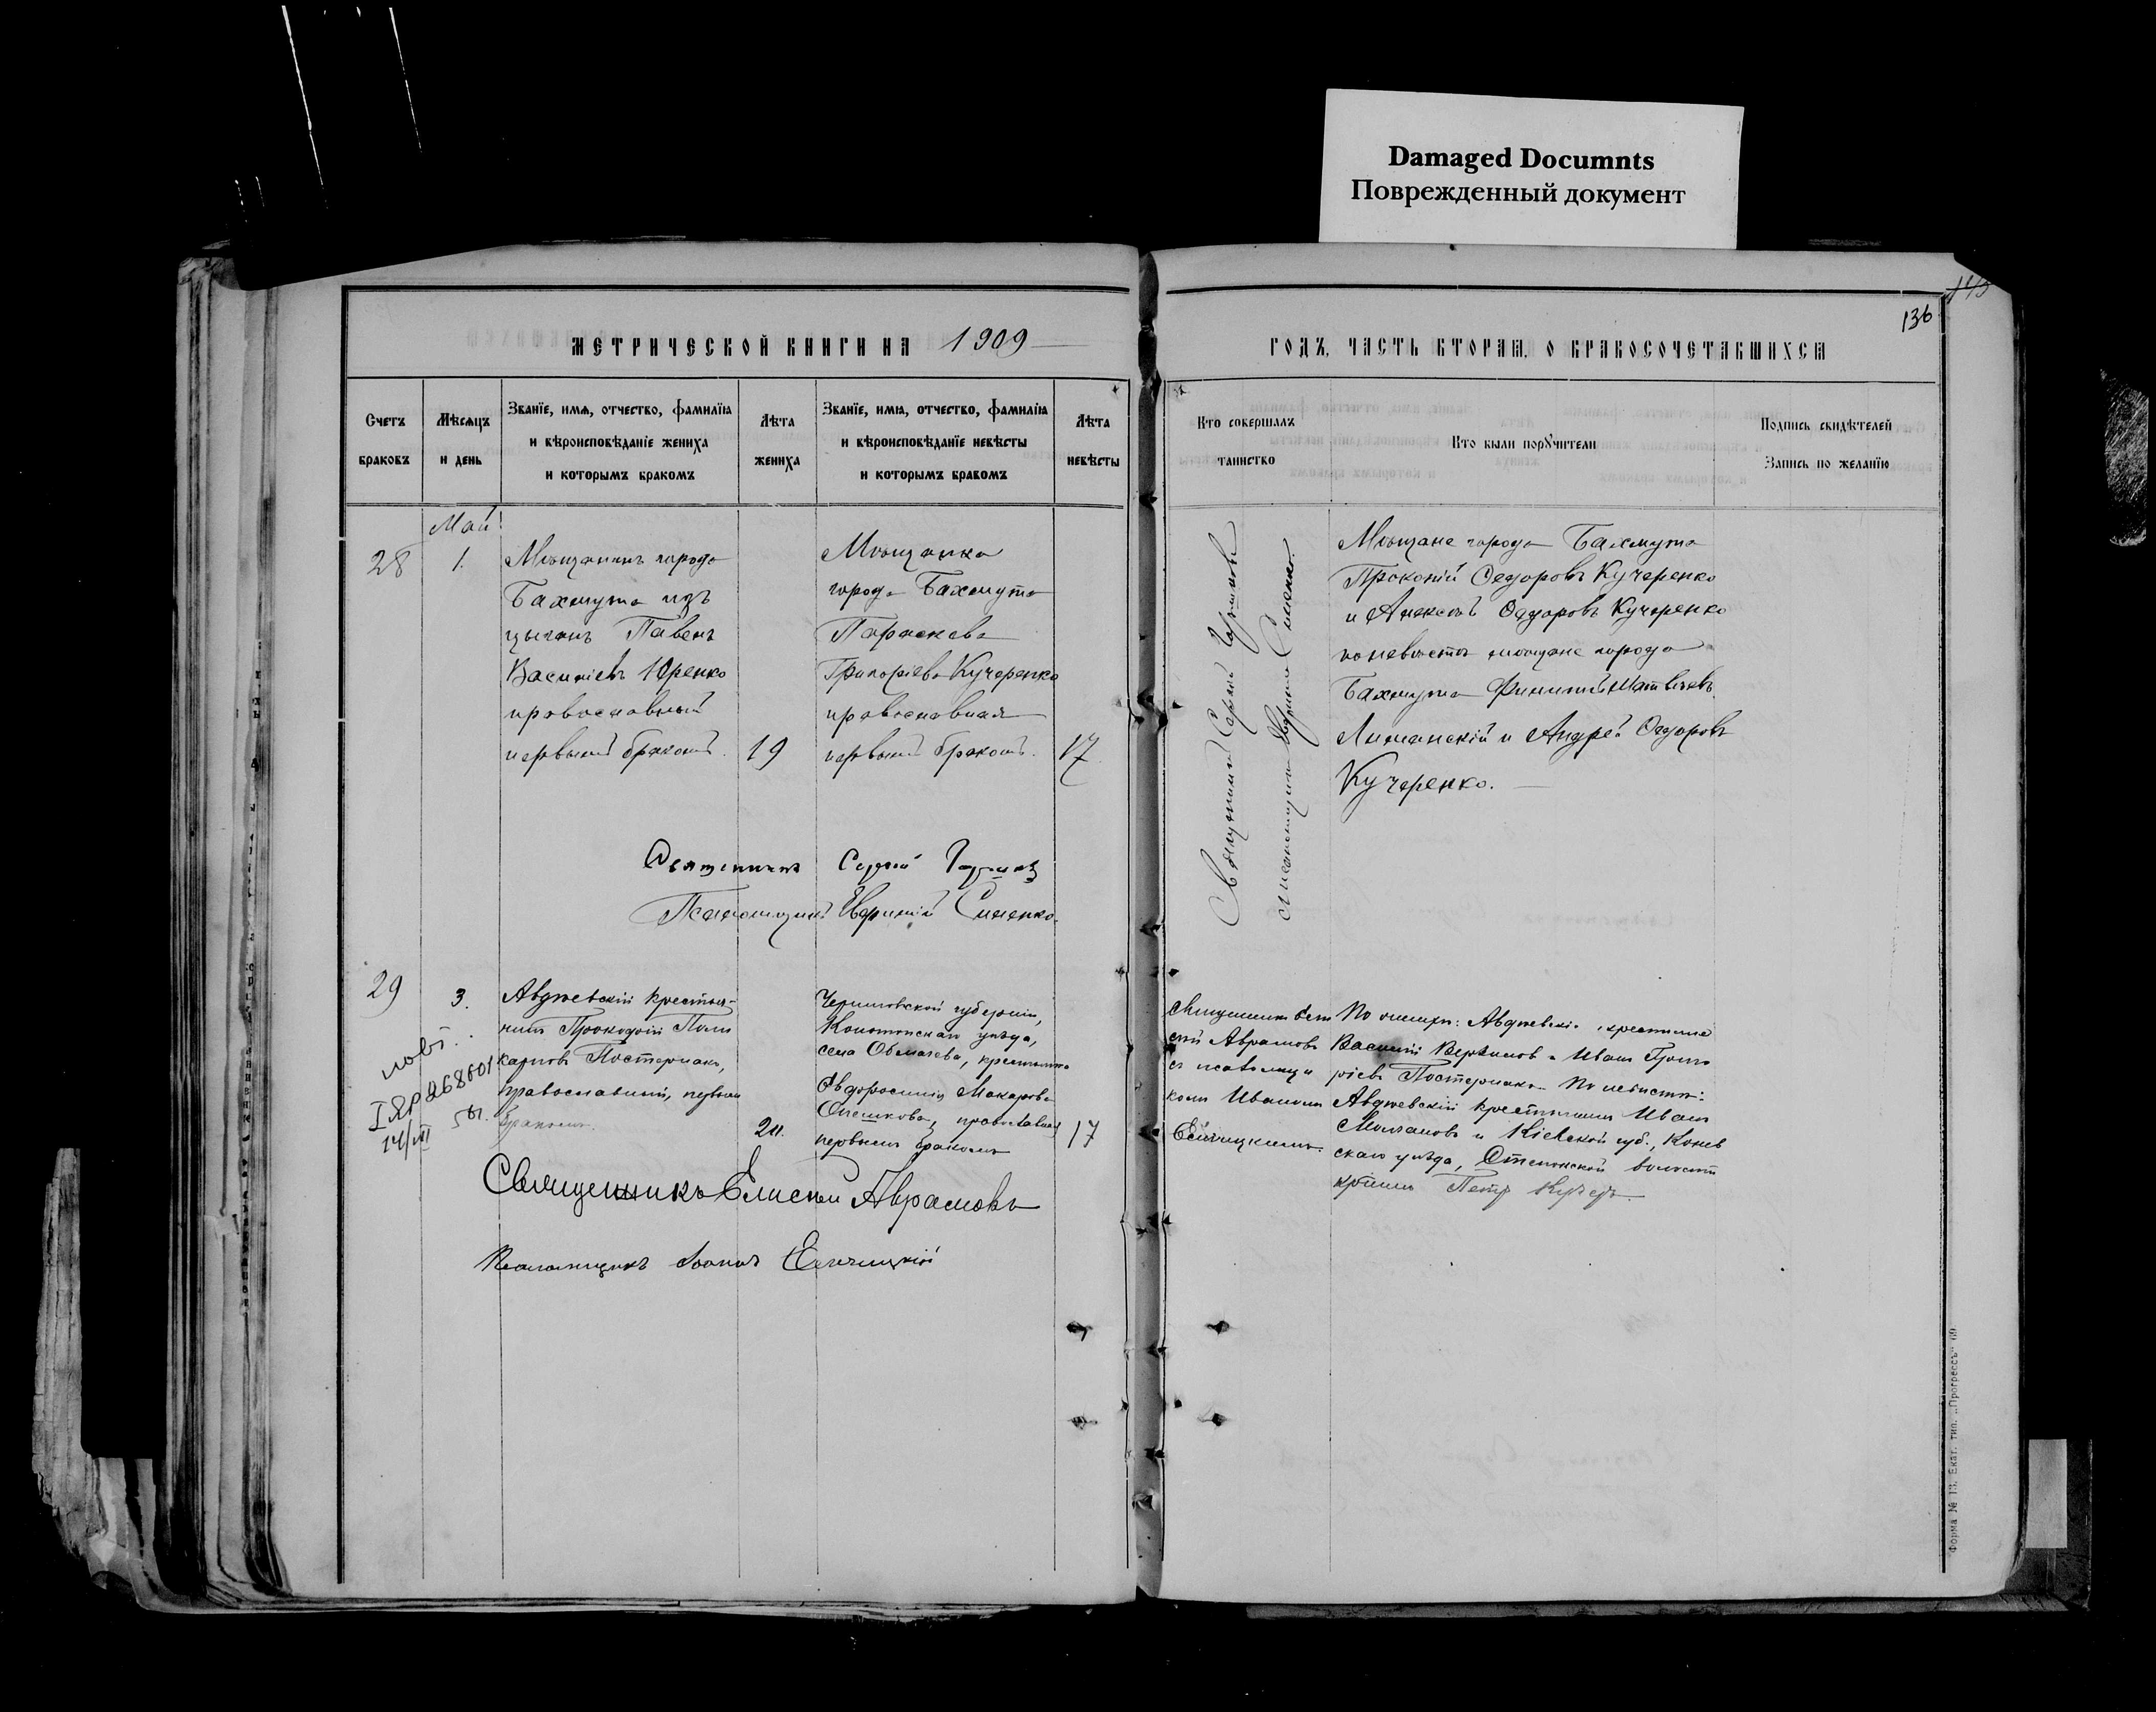 Damaged Documnts
Поврежденный документ
136
МЕТРИЧЕСКОЙ КНИГИ НА 1909
ГОДЪ, ЧАСТЬ ВТОРАЯ, О БРАКОСОЧЕТАВШИХСЯ
Счетъ браковъ
Мѣсяцъ и день
Званїе, имя, отчество, фамилїя
и вѣроисповѣданіе жениха
и которымъ бракомъ
Лѣта жениха
Званїе, имя, отчество, фамилія
и вѣроисповѣданїе невѣсты
и которымъ бракомъ
Лѣта невѣсты
Кто совершалъ
таинство
Кто были поручители
Подпись свидѣтелей
Запись по желанїю
Май
28
1.
Мѣщанинъ города
Бахмута изъ
цыганъ Павелъ
Василіевъ Юренко
православный
первымъ бракомъ.
19
Мѣщанка
города Бахмута
Параскева
Григоріева Кучеренко
православная
первымъ бракомъ.
17
Священникъ Сергій
псаломщикъ
Мѣщане города Бахмута
Прокопій Федоровъ Кучеренко
и Алексѣй Федоровъ Кучеренко
по невѣстѣ мѣщане города
Бахмута Филиппъ Матвѣевъ
Лиманскій и Андрей Федоровъ
Кучеренко.
Священникъ Сергій
Псаломщикъ
29
3.
Авдѣевскій крестья-
нинъ Прокофій Поли
карповъ Постернакъ,
православный, первымъ
бракомъ.
Черниговской губерніи,
Конотопскаго уѣзда,
села Обмачева, крестьянка
Евдоросинія Макарова
православная
первымъ бракомъ
17
Священникъ Елисѣй Аврамовъ
съ псаломщикомъ Иваномъ
По жениху: Авдѣевскіе крестьяне
Василій и Иванъ Григо
ріевъ Постернакъ По невѣстѣ:
Авдѣевскій крестьянинъ Иванъ
и Кіевской губ.,
скаго уѣзда, волости
Петръ
Священникъ Елисей Аврамовъ
Псаломщикъ Іоаннъ
Форма № 13. Екат. тип. „Прогрессъ“ 69